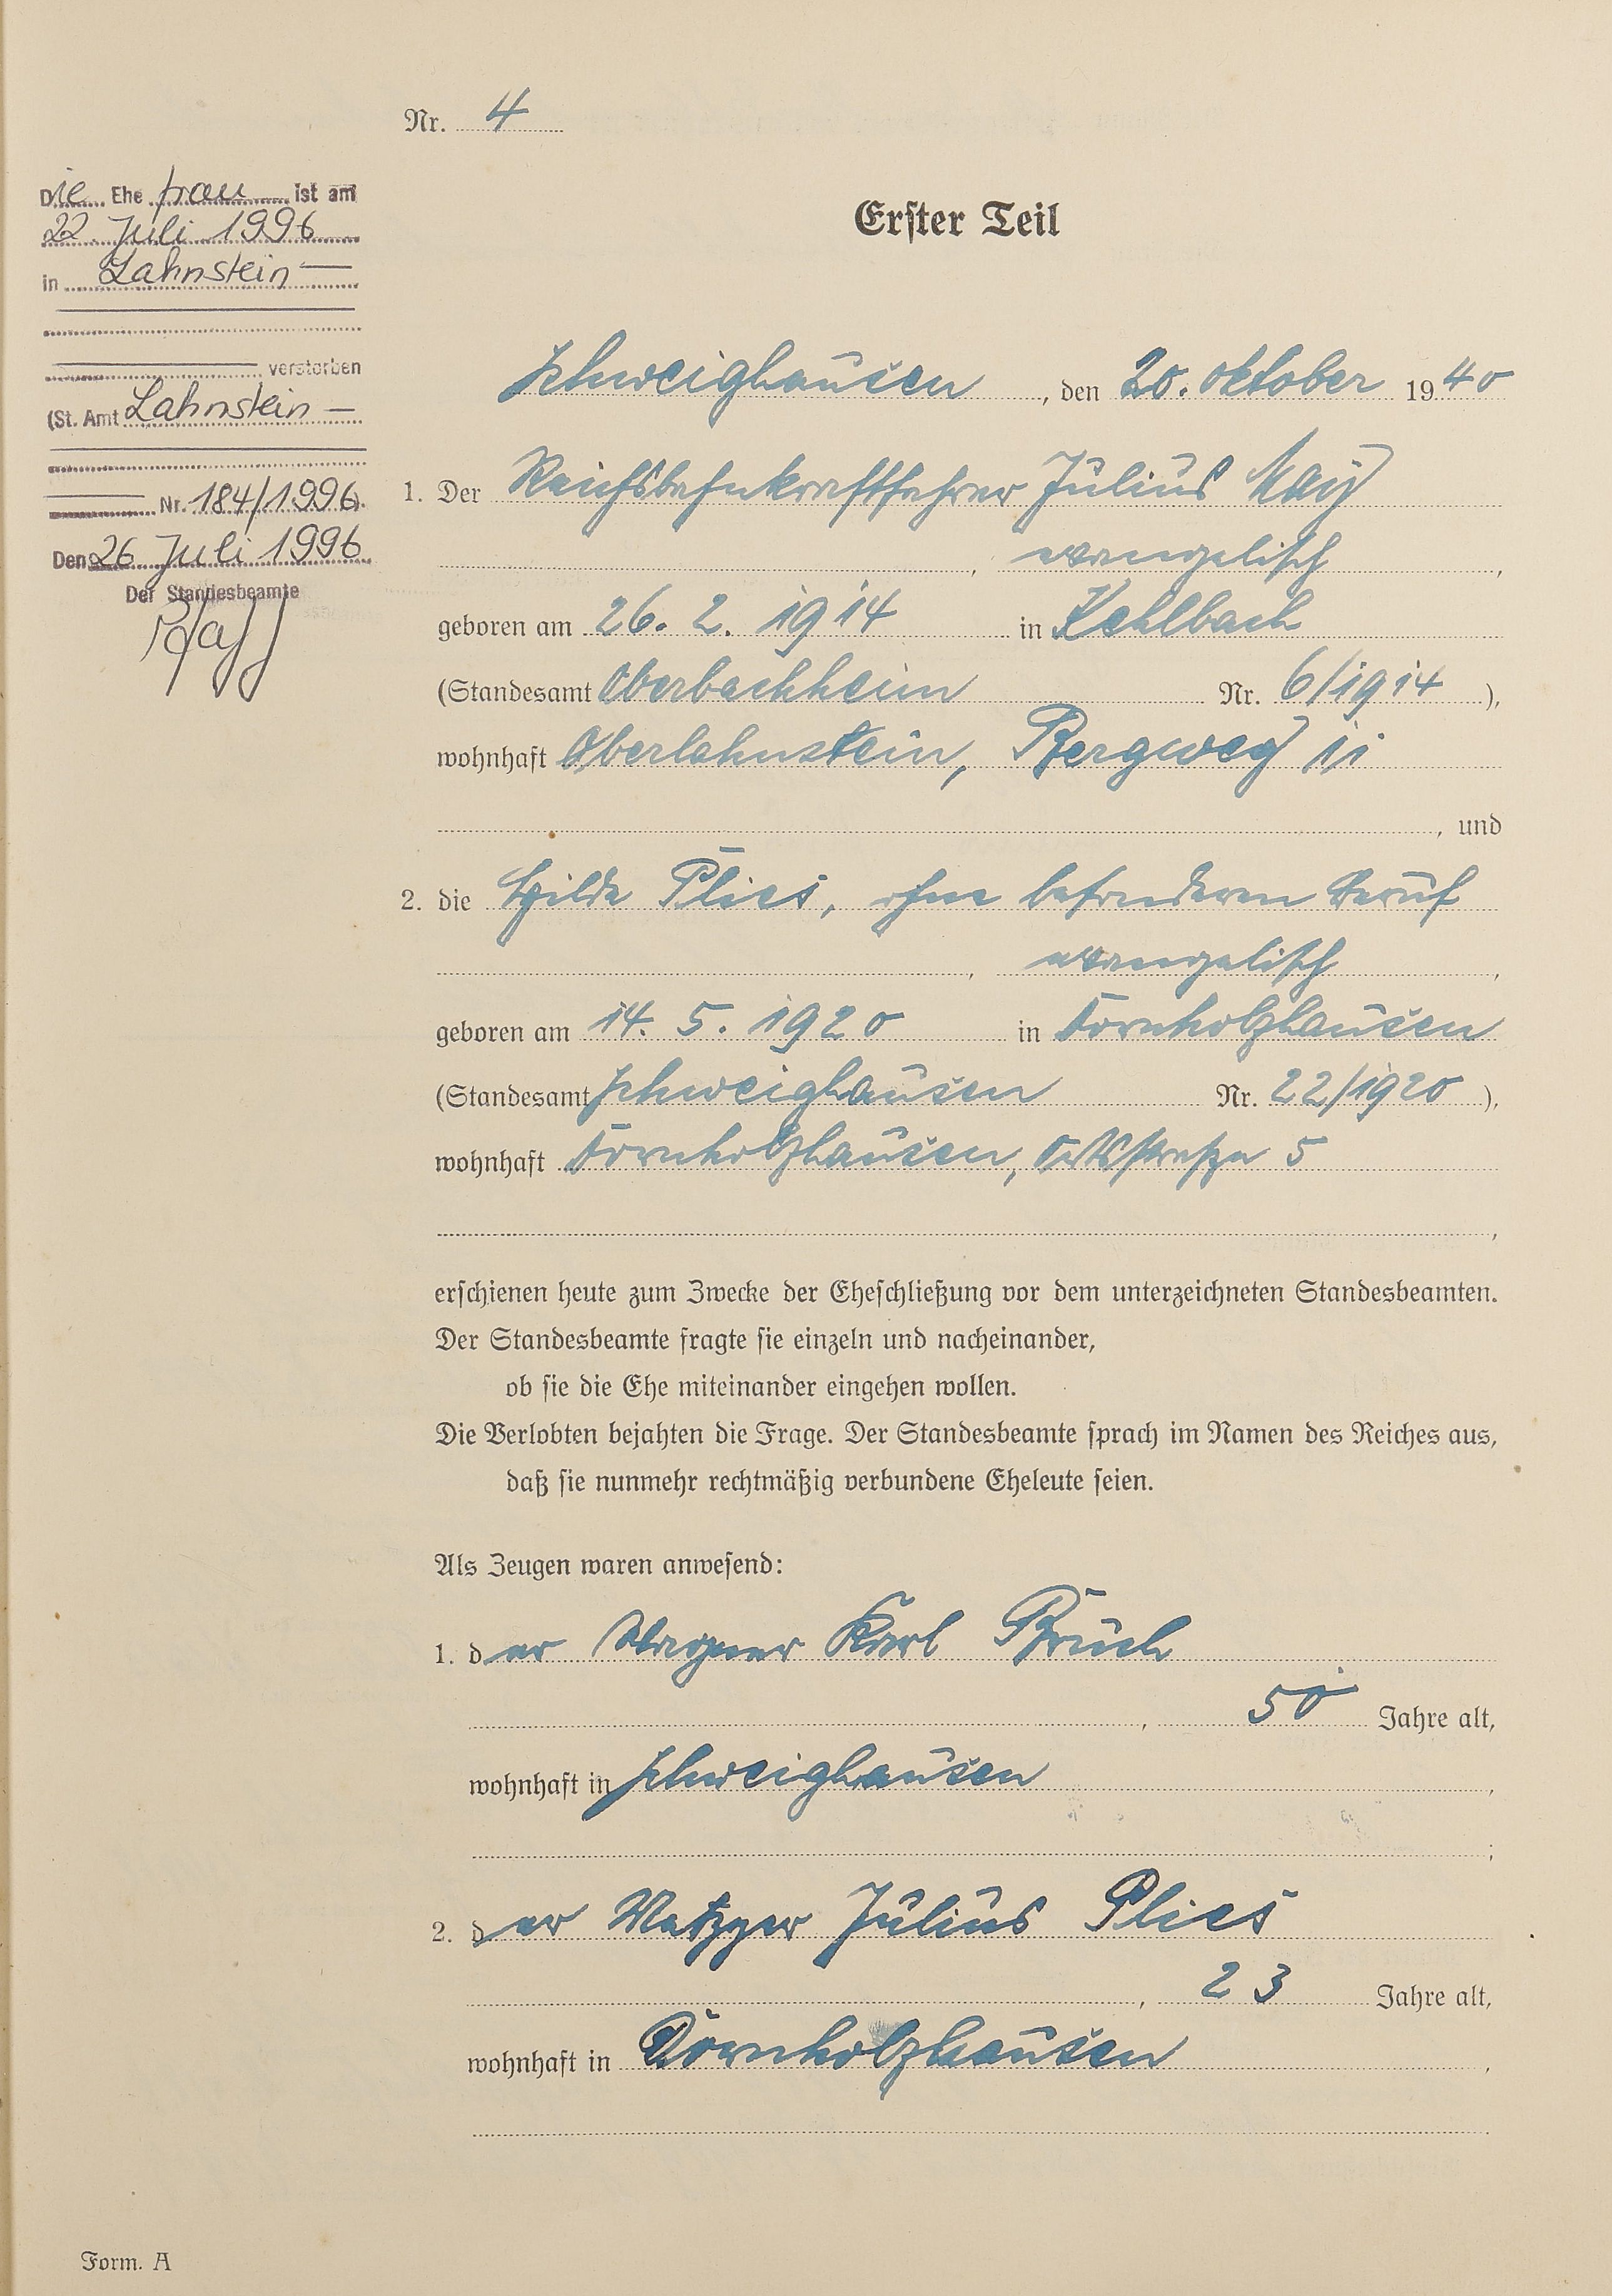 Nr. 4
Die Ehe frau ist am
22. Juli 1996
in Lahnstein —
verstorben
(St. Amt Lahnstein —
Nr. 184/1996).
Den 26. Juli 1996
Der Standesbeamte
Erster Teil
Schweighausen, den 20. Oktober 1940
1. Der Reichsbahnkraftfahrer Julius May
, evangelisch,
geboren am 26. 2. 1914 in Kehlbach
(Standesamt Oberbachheim Nr. 6/1914),
wohnhaft Oberlahnstein, Bergweg 11
, und
2. die Hilde Plies, ohne besonderen Beruf
, evangelisch,
geboren am 14. 5. 1920 in Dornholzhausen
(Standesamt Schweighausen Nr. 22/1920),
wohnhaft Dornholzhausen, Ortsstraße 5
,
erschienen heute zum Zwecke der Eheschließung vor dem unterzeichneten Standesbeamten.
Der Standesbeamte fragte sie einzeln und nacheinander,
ob sie die Ehe miteinander eingehen wollen.
Die Verlobten bejahten die Frage. Der Standesbeamte sprach im Namen des Reiches aus,
daß sie nunmehr rechtmäßig verbundene Eheleute seien.
Als Zeugen waren anwesend:
1. der Wagner Karl Bruch
, 50 Jahre alt,
wohnhaft in Schweighausen,
;
2. der Metzger Julius Plies
, 23 Jahre alt,
wohnhaft in Dornholzhausen,
.
Form. A